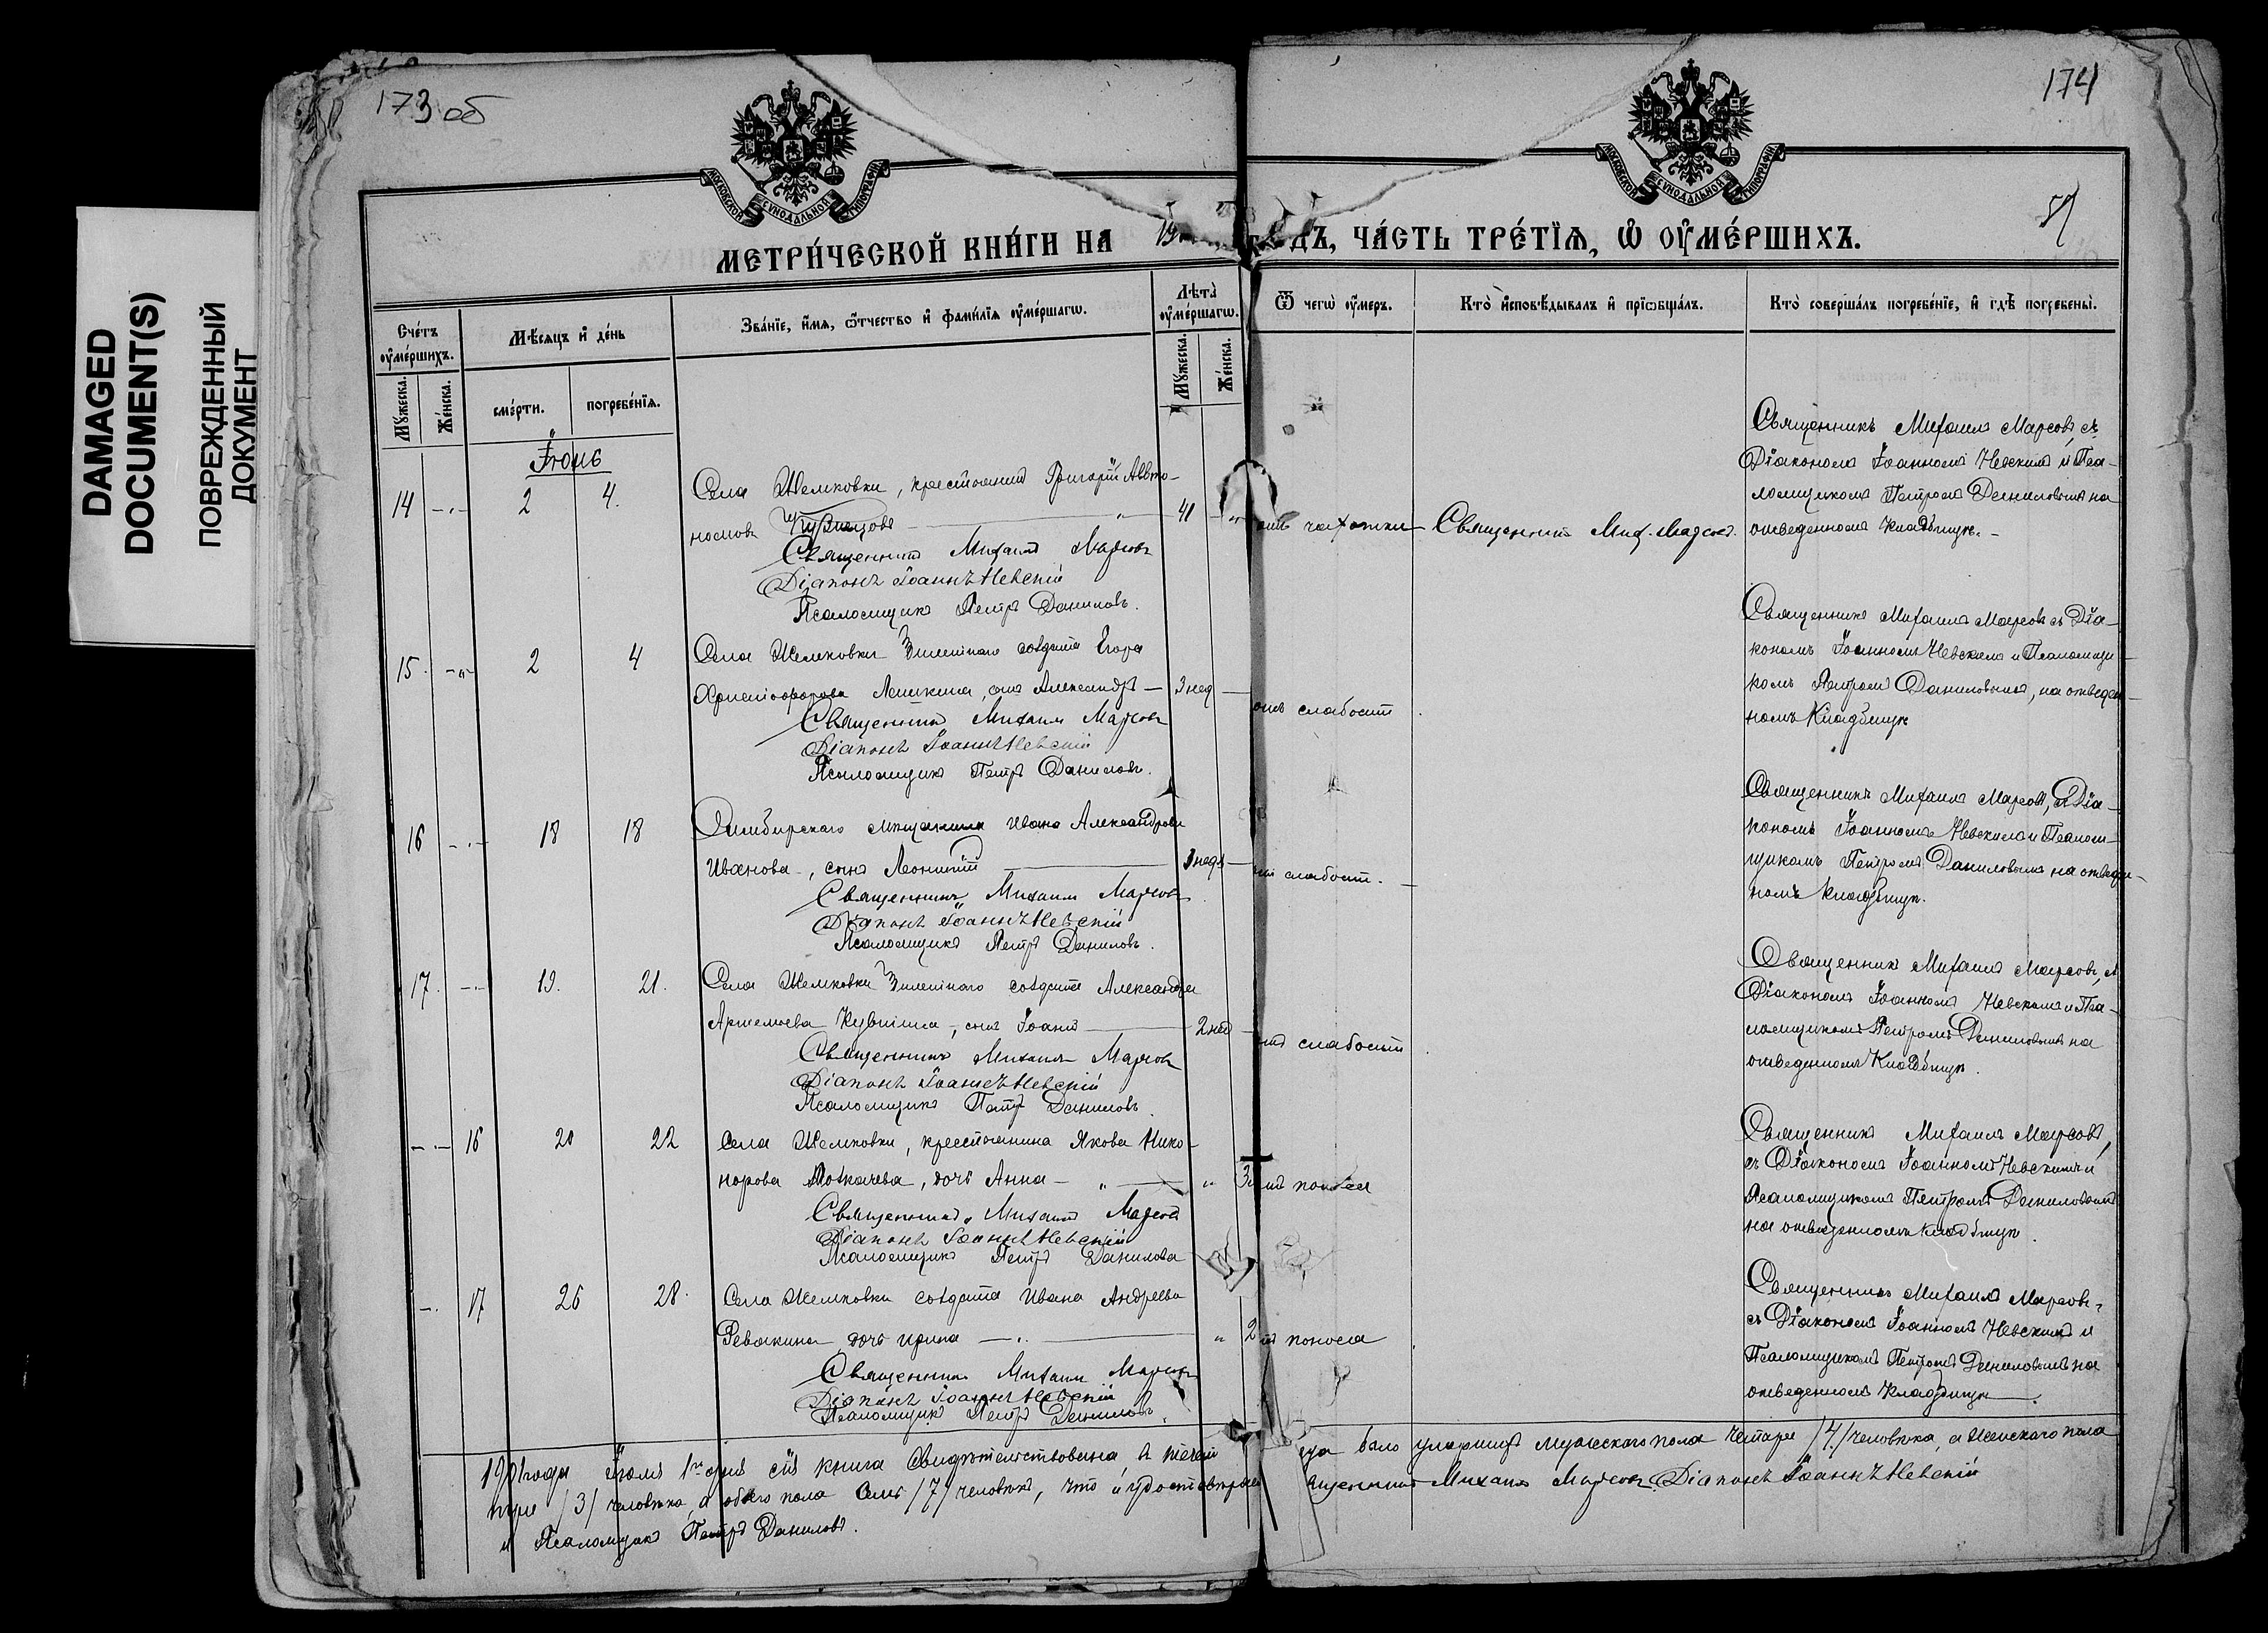 DAMAGED
DOCUMENT(S)
ПОВРЕЖДЕННЫЙ
ДОКУМЕНТ
173 об
174
МОСКОВСКОЙ СУНОДАЛЬНОЙ ТИПОГРАФІИ
МОСКОВСКОЙ СУНОДАЛЬНОЙ ТИПОГРАФІИ
МЕТРИ́ЧЕСКОЙ КНИ́ГИ НА 19 ГОДЪ, ЧА́СТЬ ТРЕ́ТЇѦ, Ѡ ОУМЕ́РШИХЪ.
Сче́тъ оумершихъ.
Мꙋжеска.
Же́нска.
Мѣсѧцъ и де́нь
сме́рти.
погребе́нїѧ.
Зва́нїе, и́мѧ, ѻ́тчество и фами́лїѧ оумершагѡ.
Лѣта̀ оумершагѡ.
Мꙋжеска.
Же́нска.
Ѿ чегѡ̀ оумеръ.
Кто̀ и́сповѣдывалъ и прїѡбща́лъ.
Кто̀ соверша́лъ погребе́нїе, и гдѣ̀ погребены̀.
Іюнь
14 -„- 2 4. Села Шемковки, крестьянинъ Григорій Авто-
номовъ Кузнецовъ — „ 41 „ отъ чахотки Священникъ Мих. Марсовъ.
Священникъ Михаилъ Марсовъ
Діаконъ Іоаннъ Невскій
Псаломщикъ Петръ Даниловъ.
Священникъ Михаилъ Марсовъ съ
Діакономъ Іоанномъ Невскимъ и Пса-
ломщикомъ Петромъ Даниловымъ на
отведенномъ кладбищѣ.
15. -„- 2 4 Села Шемковки солдата Егора
Христофорова сынъ Александръ — 3 нед — отъ слабости
Священникъ Михаилъ Марсовъ
Діаконъ Іоаннъ Невскій
Псаломщикъ Петръ Даниловъ.
Священникъ Михаилъ Марсовъ съ Діа-
кономъ Іоанномъ Невскимъ и Псаломщи-
комъ Петромъ Даниловымъ, на отведен-
номъ кладбищѣ
16 -„- 18 18 Симбирскаго мѣщанина Ивана Александрова
Иванова, сынъ Леонидъ — 3 нед — отъ слабости. —
Священникъ Михаилъ Марсовъ
Діаконъ Іоаннъ Невскій
Псаломщикъ Петръ Даниловъ.
Священникъ Михаилъ Марсовъ, съ Діа-
кономъ Іоанномъ Невскимъ и Псалом-
щикомъ Петромъ Даниловымъ на отведен-
номъ кладбищѣ.
17. -„- 19. 21. Села Шемковки солдата Александра
Артемьева сынъ Іоаннъ — 2 нед — отъ слабости
Священникъ Михаилъ Марсовъ
Діаконъ Іоаннъ Невскій
Псаломщикъ Петръ Даниловъ.
Священникъ Михаилъ Марсовъ, съ
Діакономъ Іоанномъ Невскимъ и Пса-
ломщикомъ Петромъ Даниловымъ на
отведенномъ кладбищѣ.
-„- 16 20 22 Села Шемковки, крестьянина Якова Нико-
норова дочь Анна — „ — „ 3 отъ поноса
Священникъ Михаилъ Марсовъ
Діаконъ Іоаннъ Невскій
Псаломщикъ Петръ Даниловъ
Священникъ Михаилъ Марсовъ,
съ Діакономъ Іоанномъ Невскимъ и
Псаломщикомъ Петромъ Даниловымъ
на отведенномъ кладбищѣ.
-. 17 26 28. Села Шемковки солдата Ивана Андреева
Ревякина дочь Ирина — „ 2 отъ поноса
Священникъ Михаилъ Марсовъ
Діаконъ Іоаннъ Невскій
Псаломщикъ Петръ Даниловъ.
Священникъ Михаилъ Марсовъ,
съ Діакономъ Іоанномъ Невскимъ и
Псаломщикомъ Петромъ Даниловымъ на
отведенномъ кладбищѣ.
1901 года Іюля 1го дня сія книга свидѣтельствована, въ теченіи было умершихъ мужескаго пола четыре /4/ человѣка, а женскаго пола
три /3/ человѣка, а обоего пола семь /7/ человѣкъ, что и удостовѣряемъ Священникъ Михаилъ Марсовъ. Діаконъ Іоаннъ Невскій
и Псаломщикъ Петръ Даниловъ.